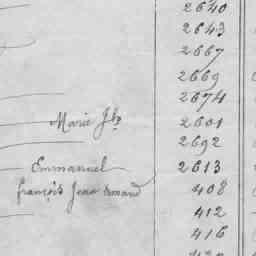 2640
2643
2667
2669
2674
Marie Jh 2601
2692
Emmanuel 2613
françois Jean Armand 408
412
416